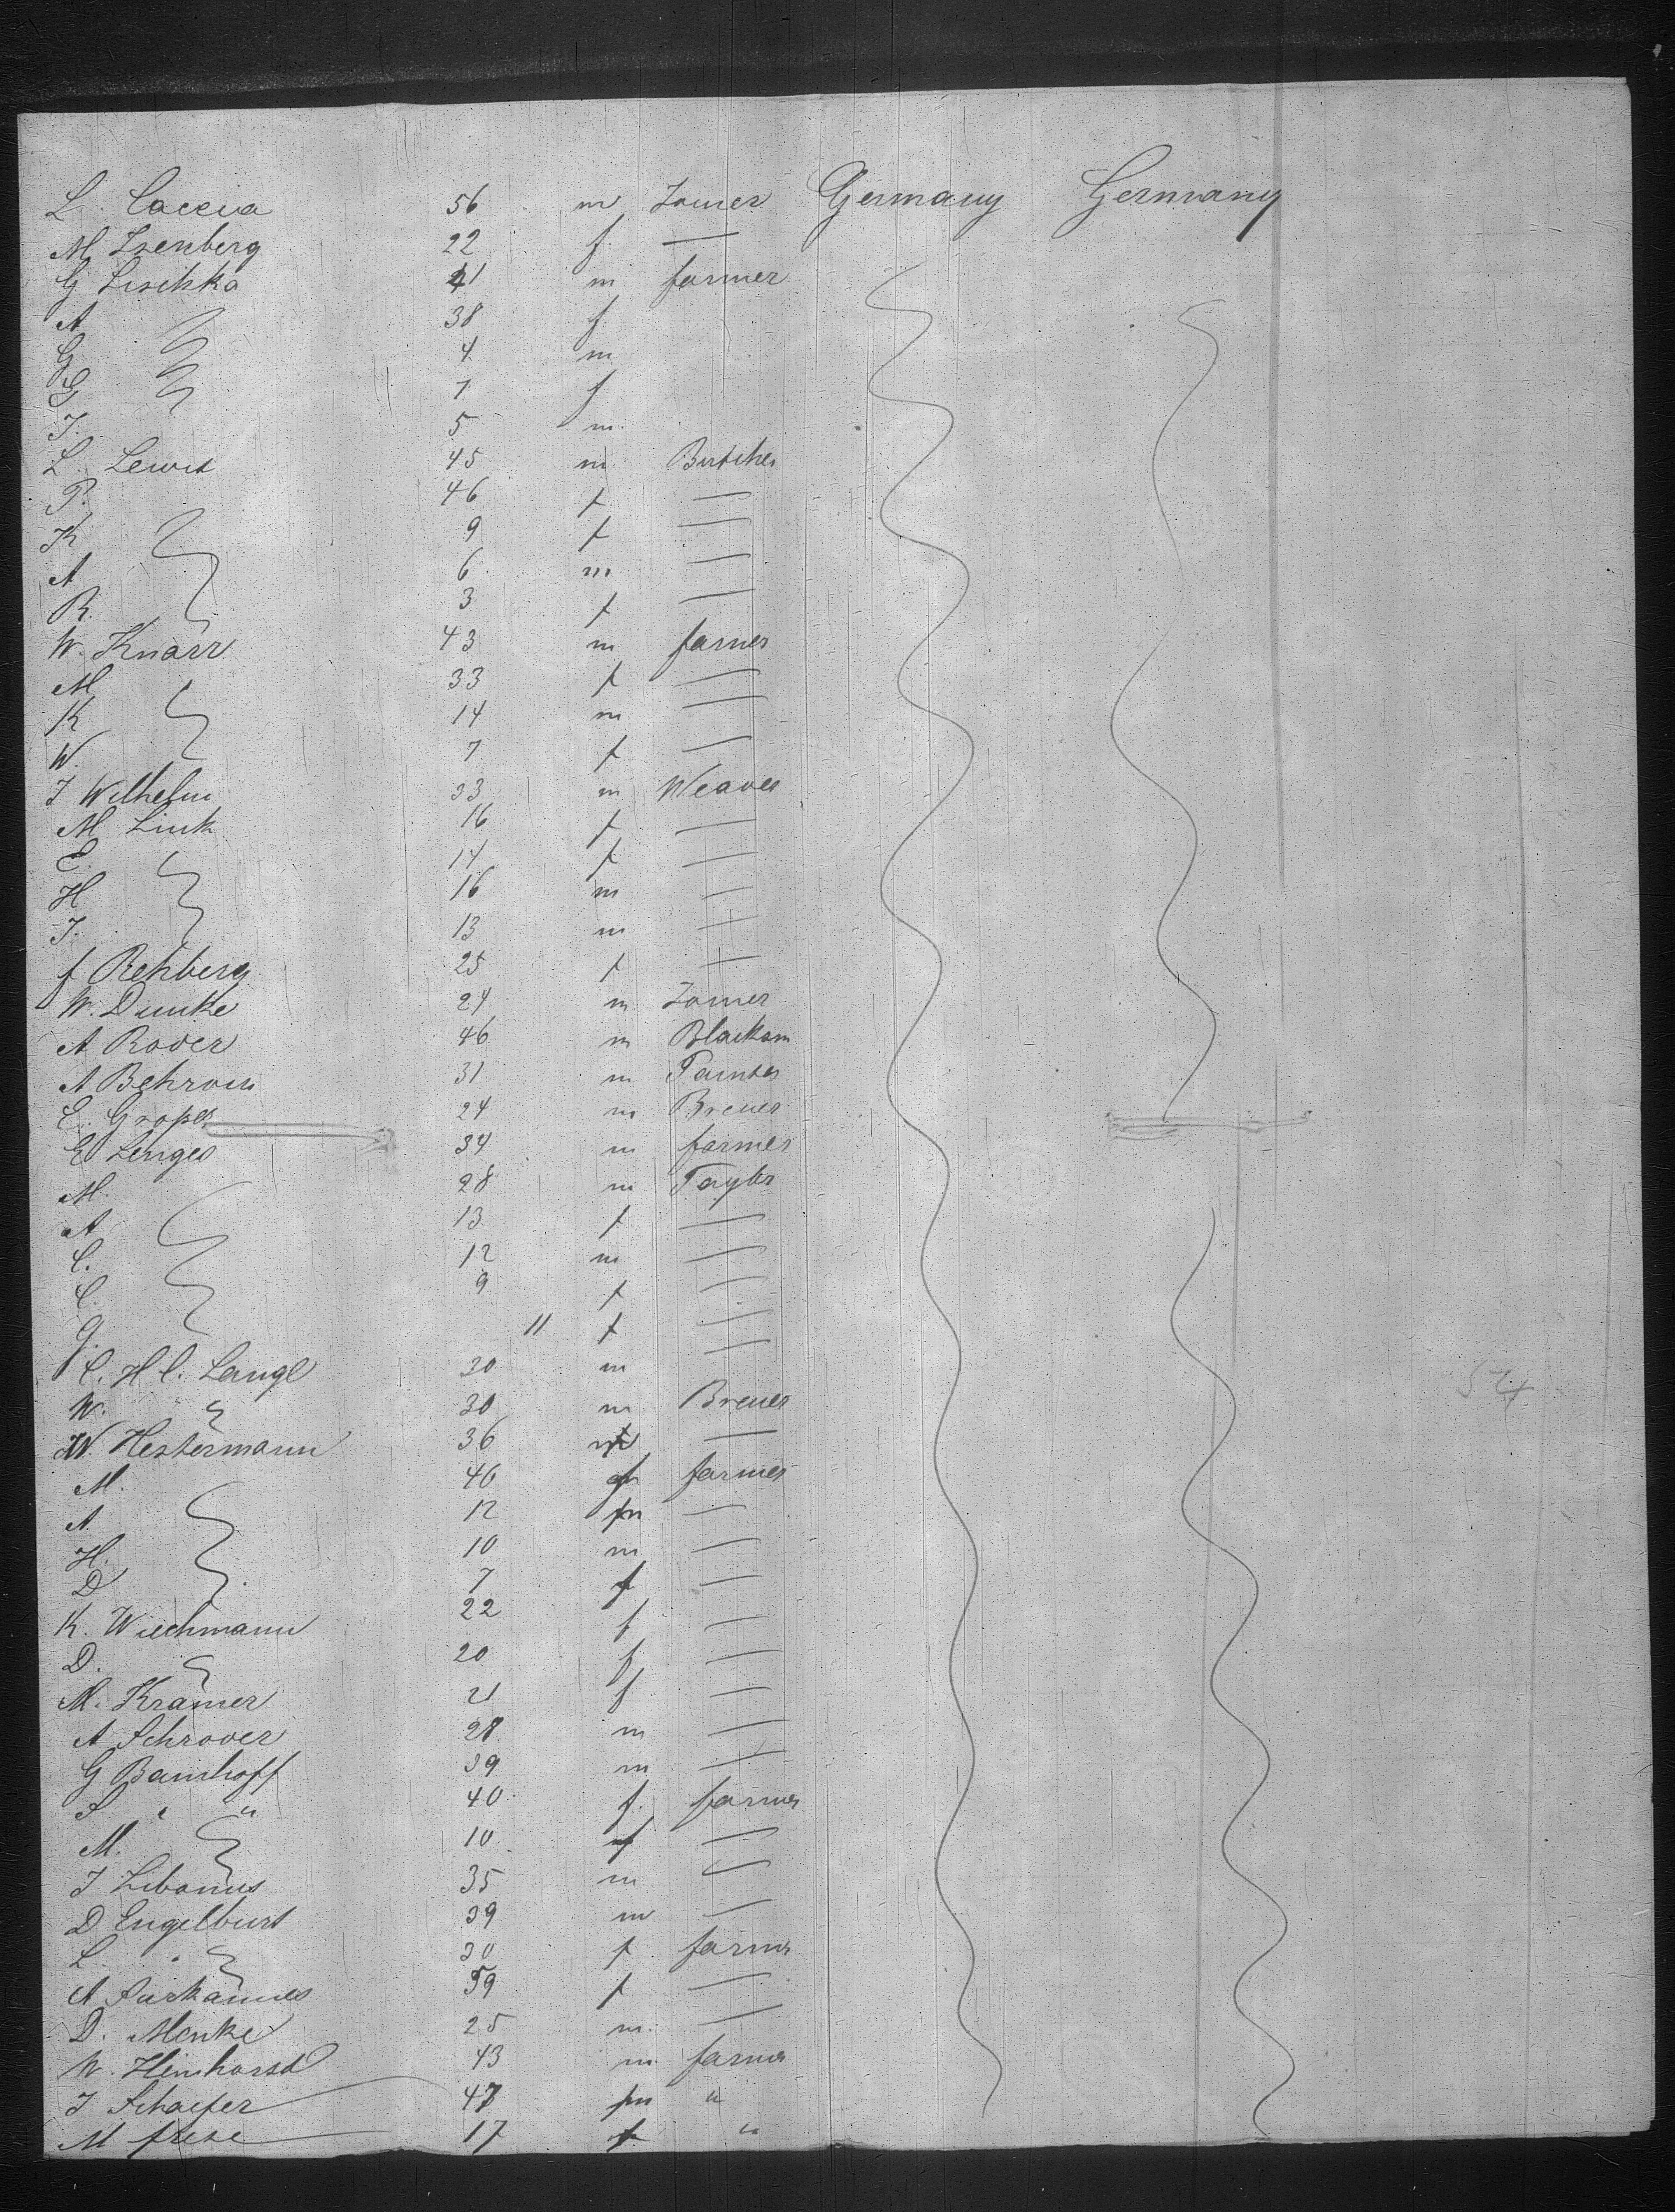 L. Caccia 56 m Joiner Germany Germany
M Isenberg 22 f —
G Lischka 41 m farmer
A 38 f
G 4 m
G 7 f
J. 5 m.
L. Lewit 45 m Butcher
P. 46 f —
K 9 f —
A 6 m —
R. 3 f —
W. Knarr 43 m farmer
M 33 f —
K 14 m —
W. 7 f —
J Wilhelm 33 m Weaver
M Link 16 f —
E. 14 f —
H 16 m —
J. 13 m —
f Rehberg 25 f —
W. Dunke 24 m Joiner
A Rover 46 m Blacksm
A Behrous 31 m Painter
E. Groper 24 m Brewer
E Lenges 34 m farmer
M. 28 m Taylor
A 13 f —
C. 12 m —
C. 9 f —
G. 11 f —
C. H C. Langl 30 m —
W. " 30 m Brewer
W. Hestermann 36 —
M. 46 farmer
A. 12 —
H. 10 m —
D 7 f —
K. Wiechmann 22 f —
D. " 20 f —
M. Kramer 21 f —
A Schrover 28 m —
G Bamhoff 39 m —
S " " 40 f. farmer
M. 10 f —
J Libonus 35 m —
D Engelburt 39 m —
L. " 30 f farmer
A 39 f —
D. Menke 25 m. —
W. Heimhorst 43 m farmer
J Schaefer 47 m "
M frese 17 f "
54